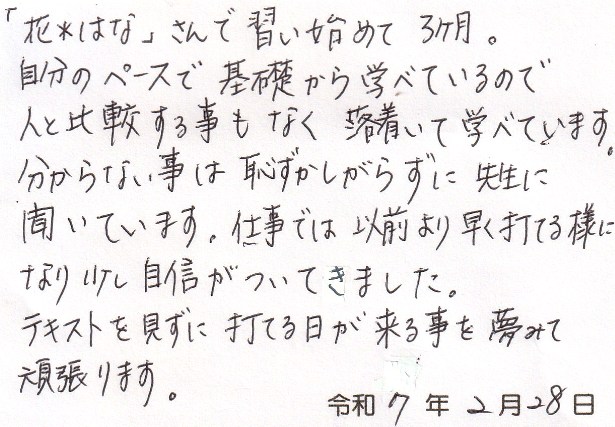 「花*はな」さんで習い始めて3ヶ月。
自分のペースで基礎から学べているので
人と比較する事もなく落着いて学べています。
分からない事は恥ずかしがらずに先生に
聞いています。仕事では以前より早く打てる様に
なり少し自信がついてきました。
テキストを見ずに打てる日が来る事を夢みて
頑張ります。
令和7年2月28日